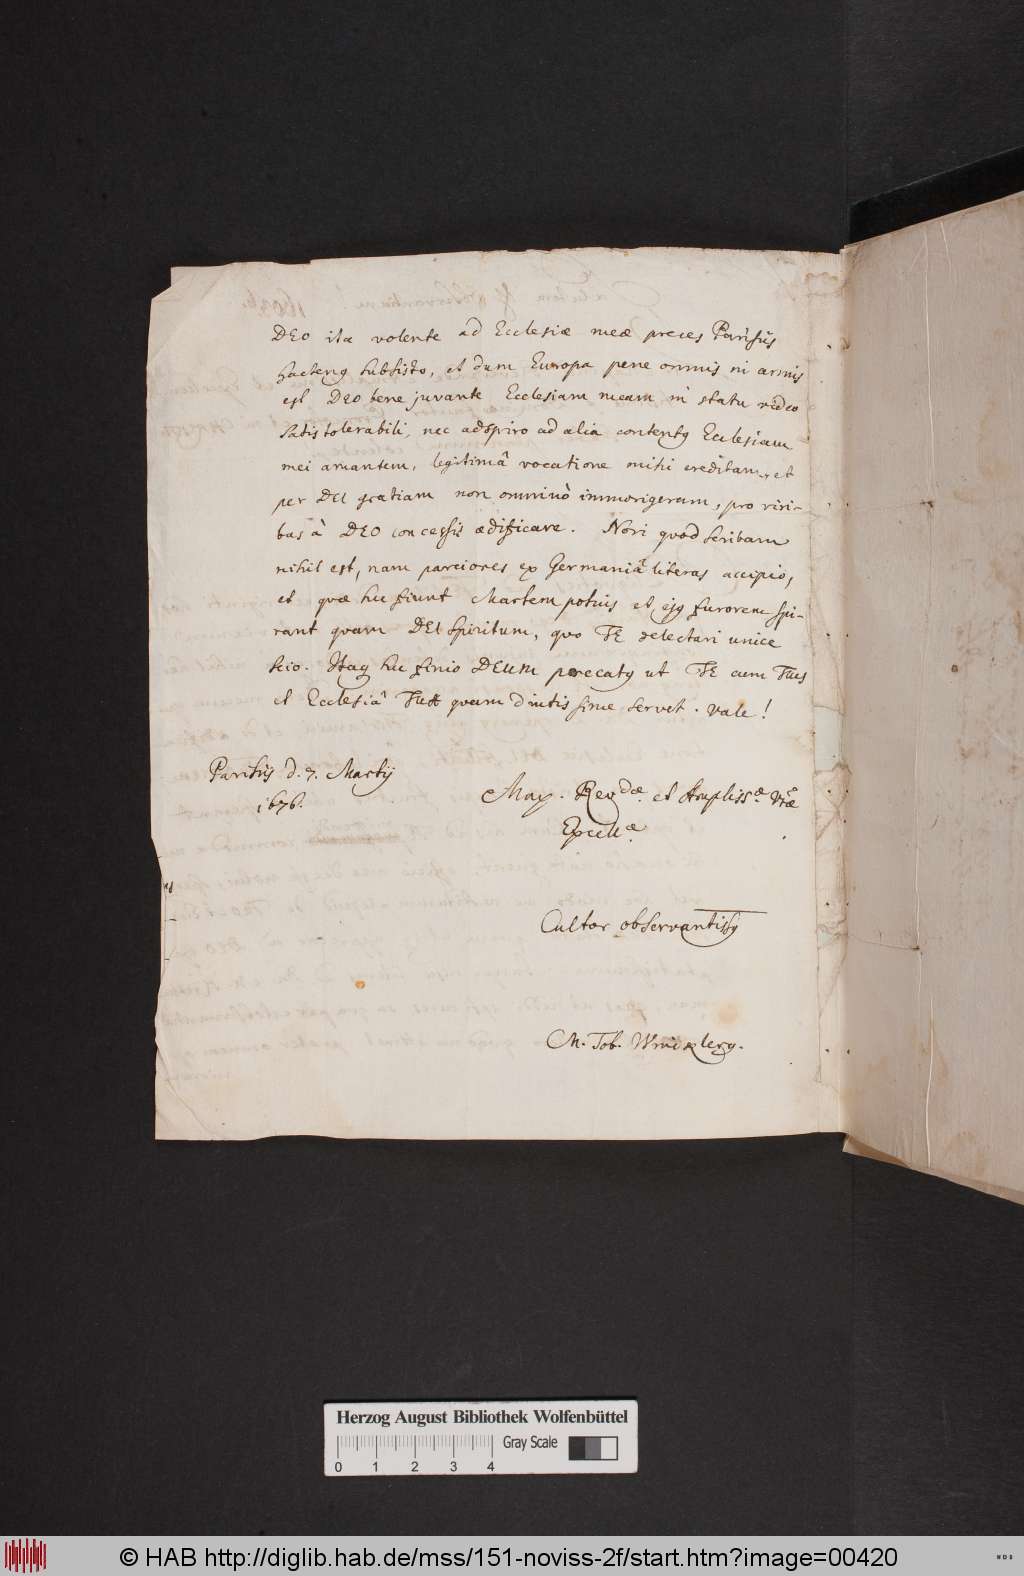 DEO ita volente ad Ecclesiæ meæ preces Parisiis
hactenq subsisto, et dum Europa pene omnis in armis
est DEO bene juvante Ecclesiam meam in statu video
satis tolerabili, nec adspiro ad alia contentq Ecclesiam
mei amantem, legitimâ vocatione mihi creditam, et
per DEI gratiam non omninò immorigeram, pro viri-
bus à DEO concessis ædificare. Novi quod scribam
nihil est, nam parciores ex Germaniâ literas accipio,
et quæ hic fiunt Martem potius et ejq furorem spi-
rant quam DEI Spiritum, quo TE delectari unice
scio. Itaq hic finio DEUM precatq ut TE cum Tuis
et Ecclesiâ Tuâ quam diutissime servet. Vale!
Parisiis d. 7. Martij
1676.
Max. Revdæ. et Ampliss.æ Vræ
Excellæ
Cultor observantissq
M. Tob. Wincklerq.
Herzog August Bibliothek Wolfenbüttel
Gray Scale
0 1 2 3 4
© HAB http://diglib.hab.de/mss/151-noviss-2f/start.htm?image=00420